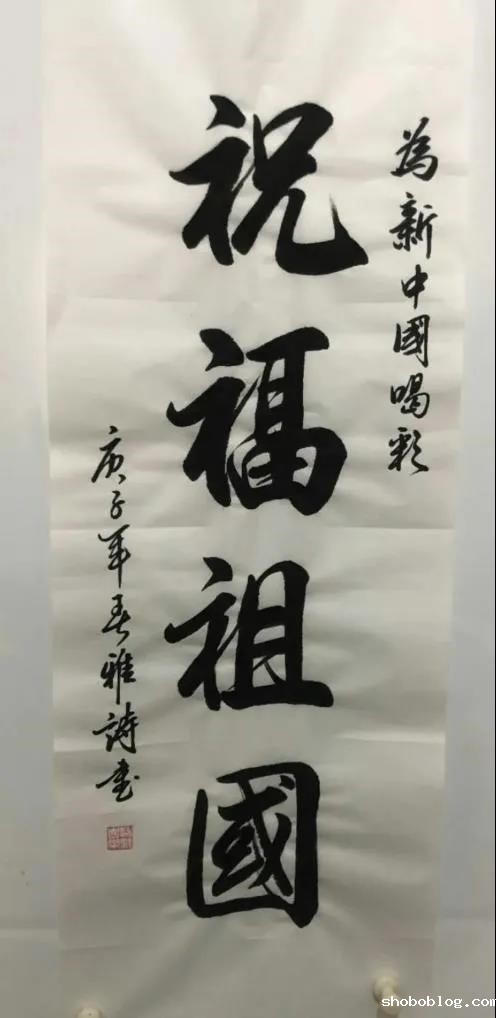 為新中國喝彩
祝福祖國
庚子年春雅詩書
shoboblog.com